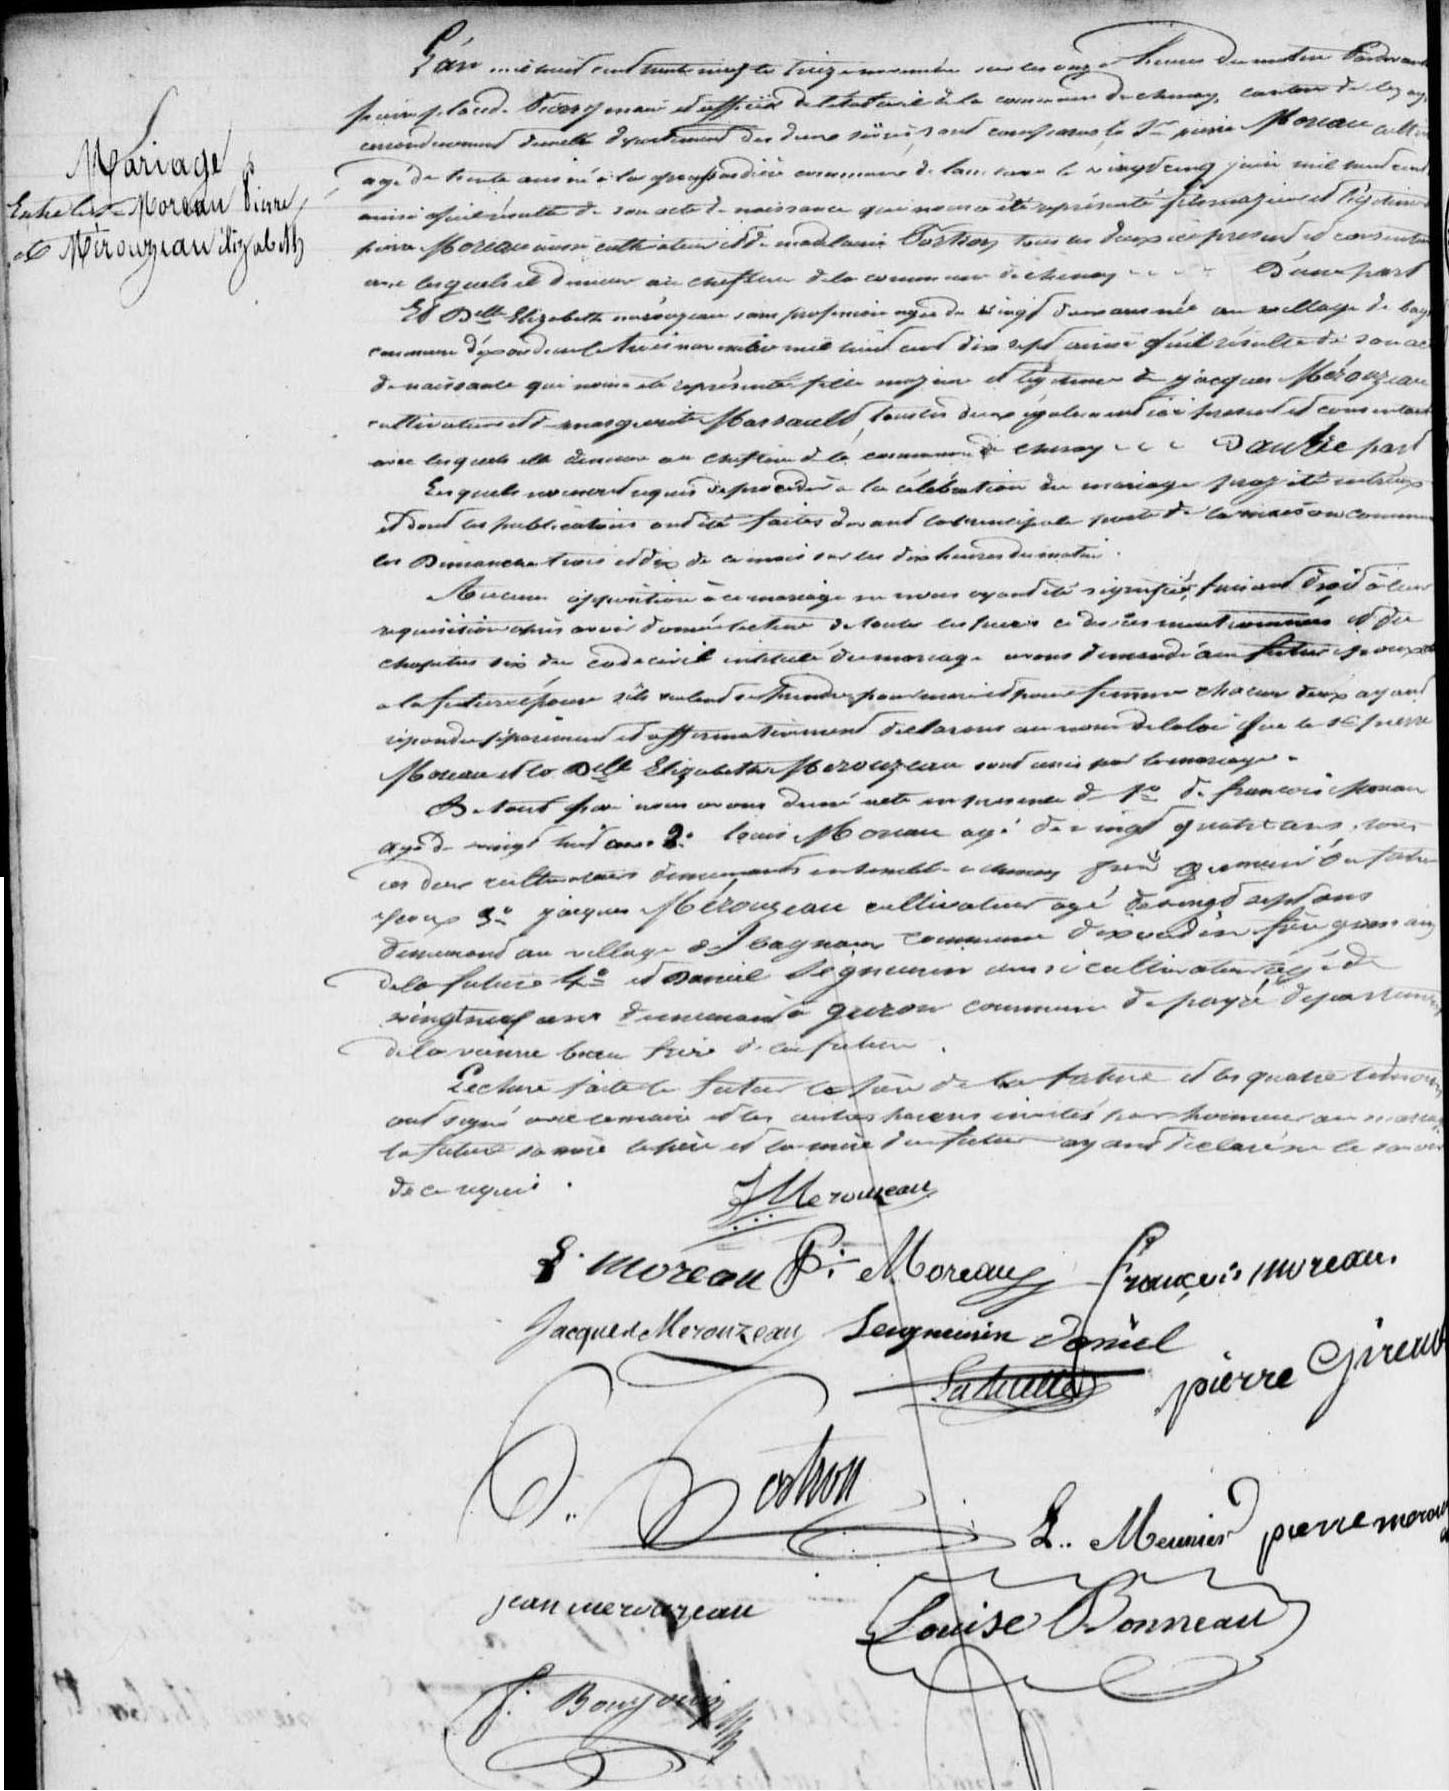 Mariage
Entre les Moreau Pierre
et Mérouzeau élizabeth
L'an mil huit cent trente neuf le treize novembre sur les onze heures du matin Pardevant
maire et officier de l'état civil de la commune de chenay, canton de lezay
arrondissement de melle département des deux sèvres, sont comparus le Sr pierre Moreau
agé de trente ans né à la commune de le vingt cinq juin mil huit cent
ainsi qu'il résulte de son acte de naissance qui nous a été représenté fils majeur et légitime
pierre Moreau aussi cultivateur et de madelaine tous les deux ici présent et consentant
avec lesquels il demeure au chefLieu de la commune de chenay D'une part
Et Delle Elizabeth mérouzeau sans profession agée de vingt deux ans née au village de
commune d'exoudun le novembre mil huit cent dix sept ainsi qu'il résulte de son
de naissance qui nous a été représenté fille majeure et légitime de jacques Mérouzeau
cultivateur et de marguerite Massault, tous les deux également ici présent et consentant
avec lesquels elle demeure au chefLieu de la commune de chenay D'autre part
Lesquels nous ont requis de procéder à la célébration du mariage projeté entr'eux
et dont les publications ont été faites devant la principale porte de la maison commune
les Dimanches trois et dix de ce mois sur les dix heures du matin.
Aucune opposition à ce mariage ne nous ayant été signifiée, faisant droit à leur
requisition après avoir donné lecture de toutes les pièces ci dessus mentionnées et du
chapitre six du code civil intitulé du mariage avons demandé au futur époux et
a la future épouse s'ils veulent se prendre pour mari et pour femme chacun d'eux ayant
répondu séparément et affirmativement déclarons au nom de la loi que le Sr pierre
Moreau et la Delle Elizabeth Merouzeau sont unis par le mariage.
De tout quoi nous avons dressé acte en présence de 1º de françois Moreau
agé de vingt huit ans. 2º louis Moreau agé de vingt quatre ans, tous
ces deux cultivateurs demeurants ensemble a chenay frères germain du futur
époux 3º jacques Mérouzeau cultivateur agé de vingt sept ans
demeurant au village de bagnaux commune d'exoudun frère germain
de la future 4º et Daniel Seigneurin aussi cultivateur agé de
vingt neuf ans demeurant à commune de payré département
de la vienne beau frère de la future.
Lecture faite le futur le père de la future et les quatre témoins
ont signé avec le maire et les autres parens invités par honneur au mariage
la future sa mère le père et la mère du futur ayant déclaré ne le savoir
de ce requis.
J Merouzeau
L. moreau P. Moreau françois moreau.
Jacques Merouzeau Seigneurin Daniel
pierre
L.. Meunier pierre
jean merouzeau
Louise Bonneau